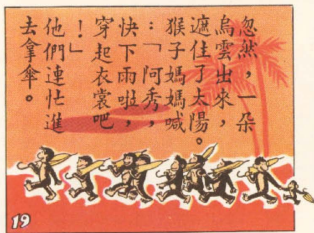 忽然，一朵
烏雲出來，
遮住了太陽。
猴子媽媽喊
：「阿秀，
快下雨啦，
穿起衣裳吧
！」
他們連忙進
去拿傘。
19